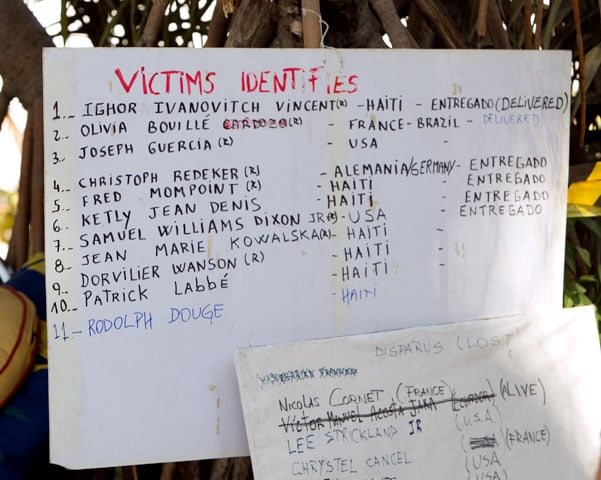 VICTIMS IDENTIFIES
1._ IGHOR IVANOVITCH VINCENT(R) - HAITI - ENTREGADO (DELIVERED)
2.. OLIVIA BOUILLÉ CARDOZO (R) - FRANCE-BRAZIL - DELIVERED
3 JOSEPH GUERCIA (R) - USA -
4.. CHRISTOPH REDEKER (R) - ALEMANIA/GERMANY - ENTREGADO
5 FRED MOMPOINT (R) - HAITI - ENTREGADO
6._ KETLY JEAN DENIS - HAITI - ENTREGADO
7._ SAMUEL WILLIAMS DIXON JR(R) - USA - ENTREGADO
8._ JEAN MARIE KOWALSKA(R) - HAITI -
9.. DORVILIER WANSON (R) - HAITI -
10.. PATRICK LABBÉ - HAITI
11 - RODOLPH DOUGE - HAITI
DISPARUS (LOST)
NICOLAS CORNET (FRANCE) (ALIVE)
VÍCTOR MANUEL ACOSTA JARA
LEE STRICKLAND JR (U.S.A)
CHRYSTEL CANCEL (FRANCE)
(USA
(USA